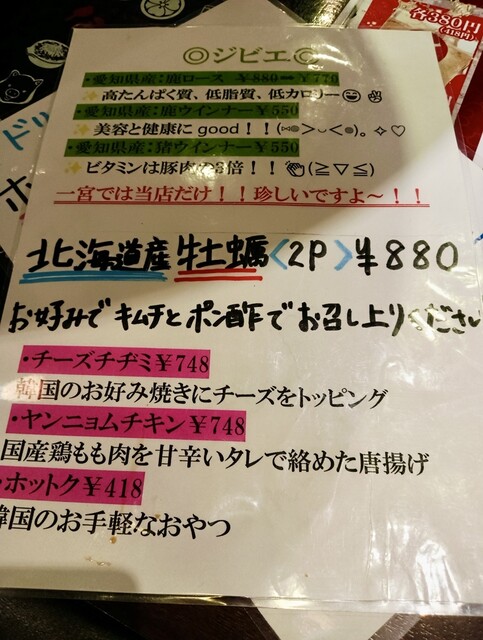 各380円
(418円)
◎ジビエ◎
・愛知県産:鹿ロース ￥880⇒￥770
✨高たんぱく質、低脂質、低カロリー😀✌
・愛知県産:鹿ウインナー￥550
✨美容と健康に good！！
・愛知県産:猪ウインナー￥550
✨ビタミンは豚肉の3倍！！👏(≧▽≦)
一宮では当店だけ！！珍しいですよ～！！
北海道産 牡蠣〈2P〉￥880
お好みで キムチと ポン酢で お召し上りください
・チーズチヂミ￥748
韓国のお好み焼きにチーズをトッピング
・ヤンニョムチキン￥748
国産鶏もも肉を甘辛いタレで絡めた唐揚げ
・ホットク￥418
韓国のお手軽なおやつ